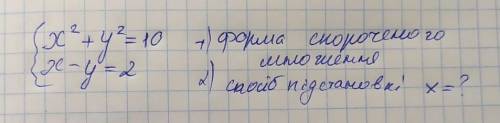 x² + y² = 10 1) форма скороченого
множення
x - y = 2 2) спосіб підстановкі x = ?